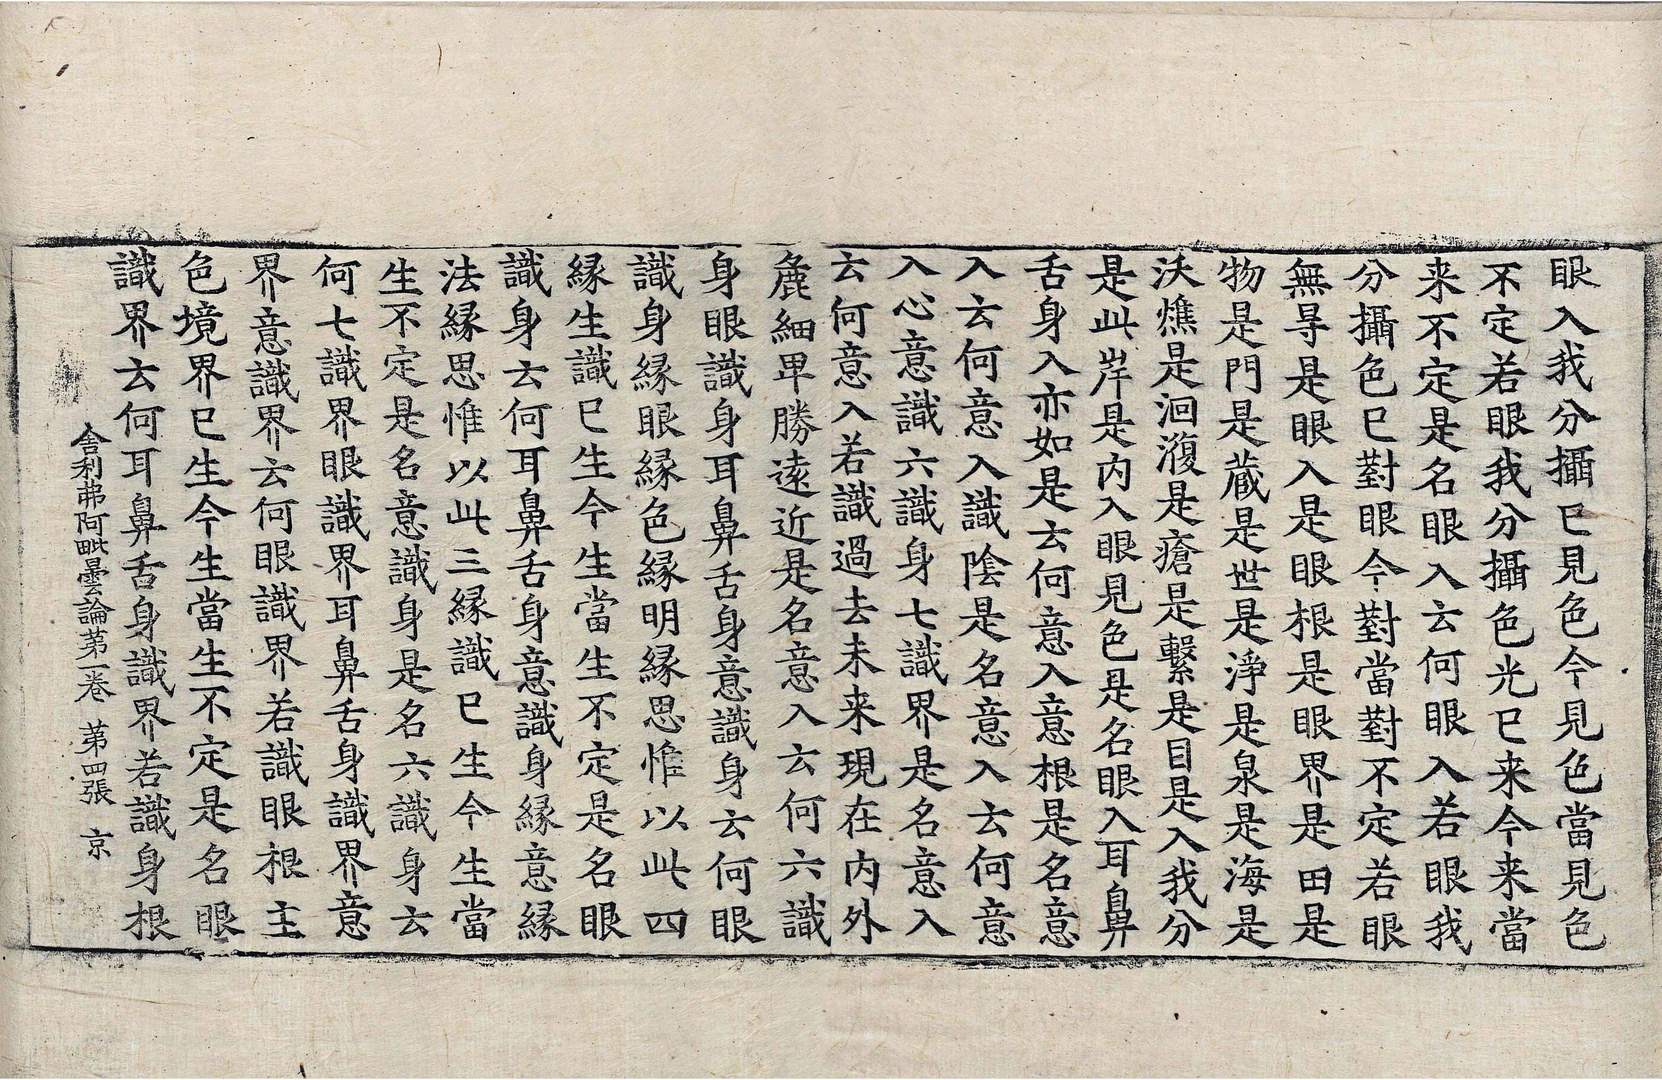 眼入我分攝已見色今見色當見色
不定若眼我分攝色光已来今来當
来不定是名眼入云何眼入若眼我
分攝色已對眼今對當對不定若眼
無㝵是眼入是眼根是眼界是田是
物是門是蔵是世是淨是泉是海是
沃燋是洄澓是瘡是繫是目是入我分
是此岸是内入眼見色是名眼入耳鼻
舌身入亦如是云何意入意根是名意
入云何意入識陰是名意入云何意
入心意識六識身七識界是名意入
云何意入若識過去未来現在内外
麁細卑勝遠近是名意入云何六識
身眼識身耳鼻舌身意識身云何眼
識身縁眼縁色縁明縁思惟以此四
縁生識已生今生當生不定是名眼
識身云何耳鼻舌身意識身縁意縁
法縁思惟以此三縁識已生今生當
生不定是名意識身是名六識身云
何七識界眼識界耳鼻舌身識界意
界意識界云何眼識界若識眼根主
色境界已生今生當生不定是名眼
識界云何耳鼻舌身識界若識身根
舍利弗阿毗曇論苐一卷 苐四張 京